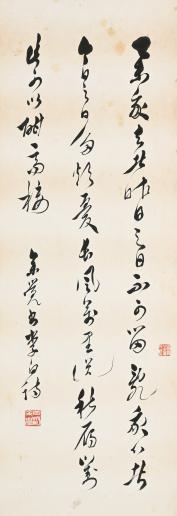 棄我去者昨日之日不可留亂我心者
今日之日多煩憂長風萬里送秋雁對
此可以酣高樓
余覺書李白詩